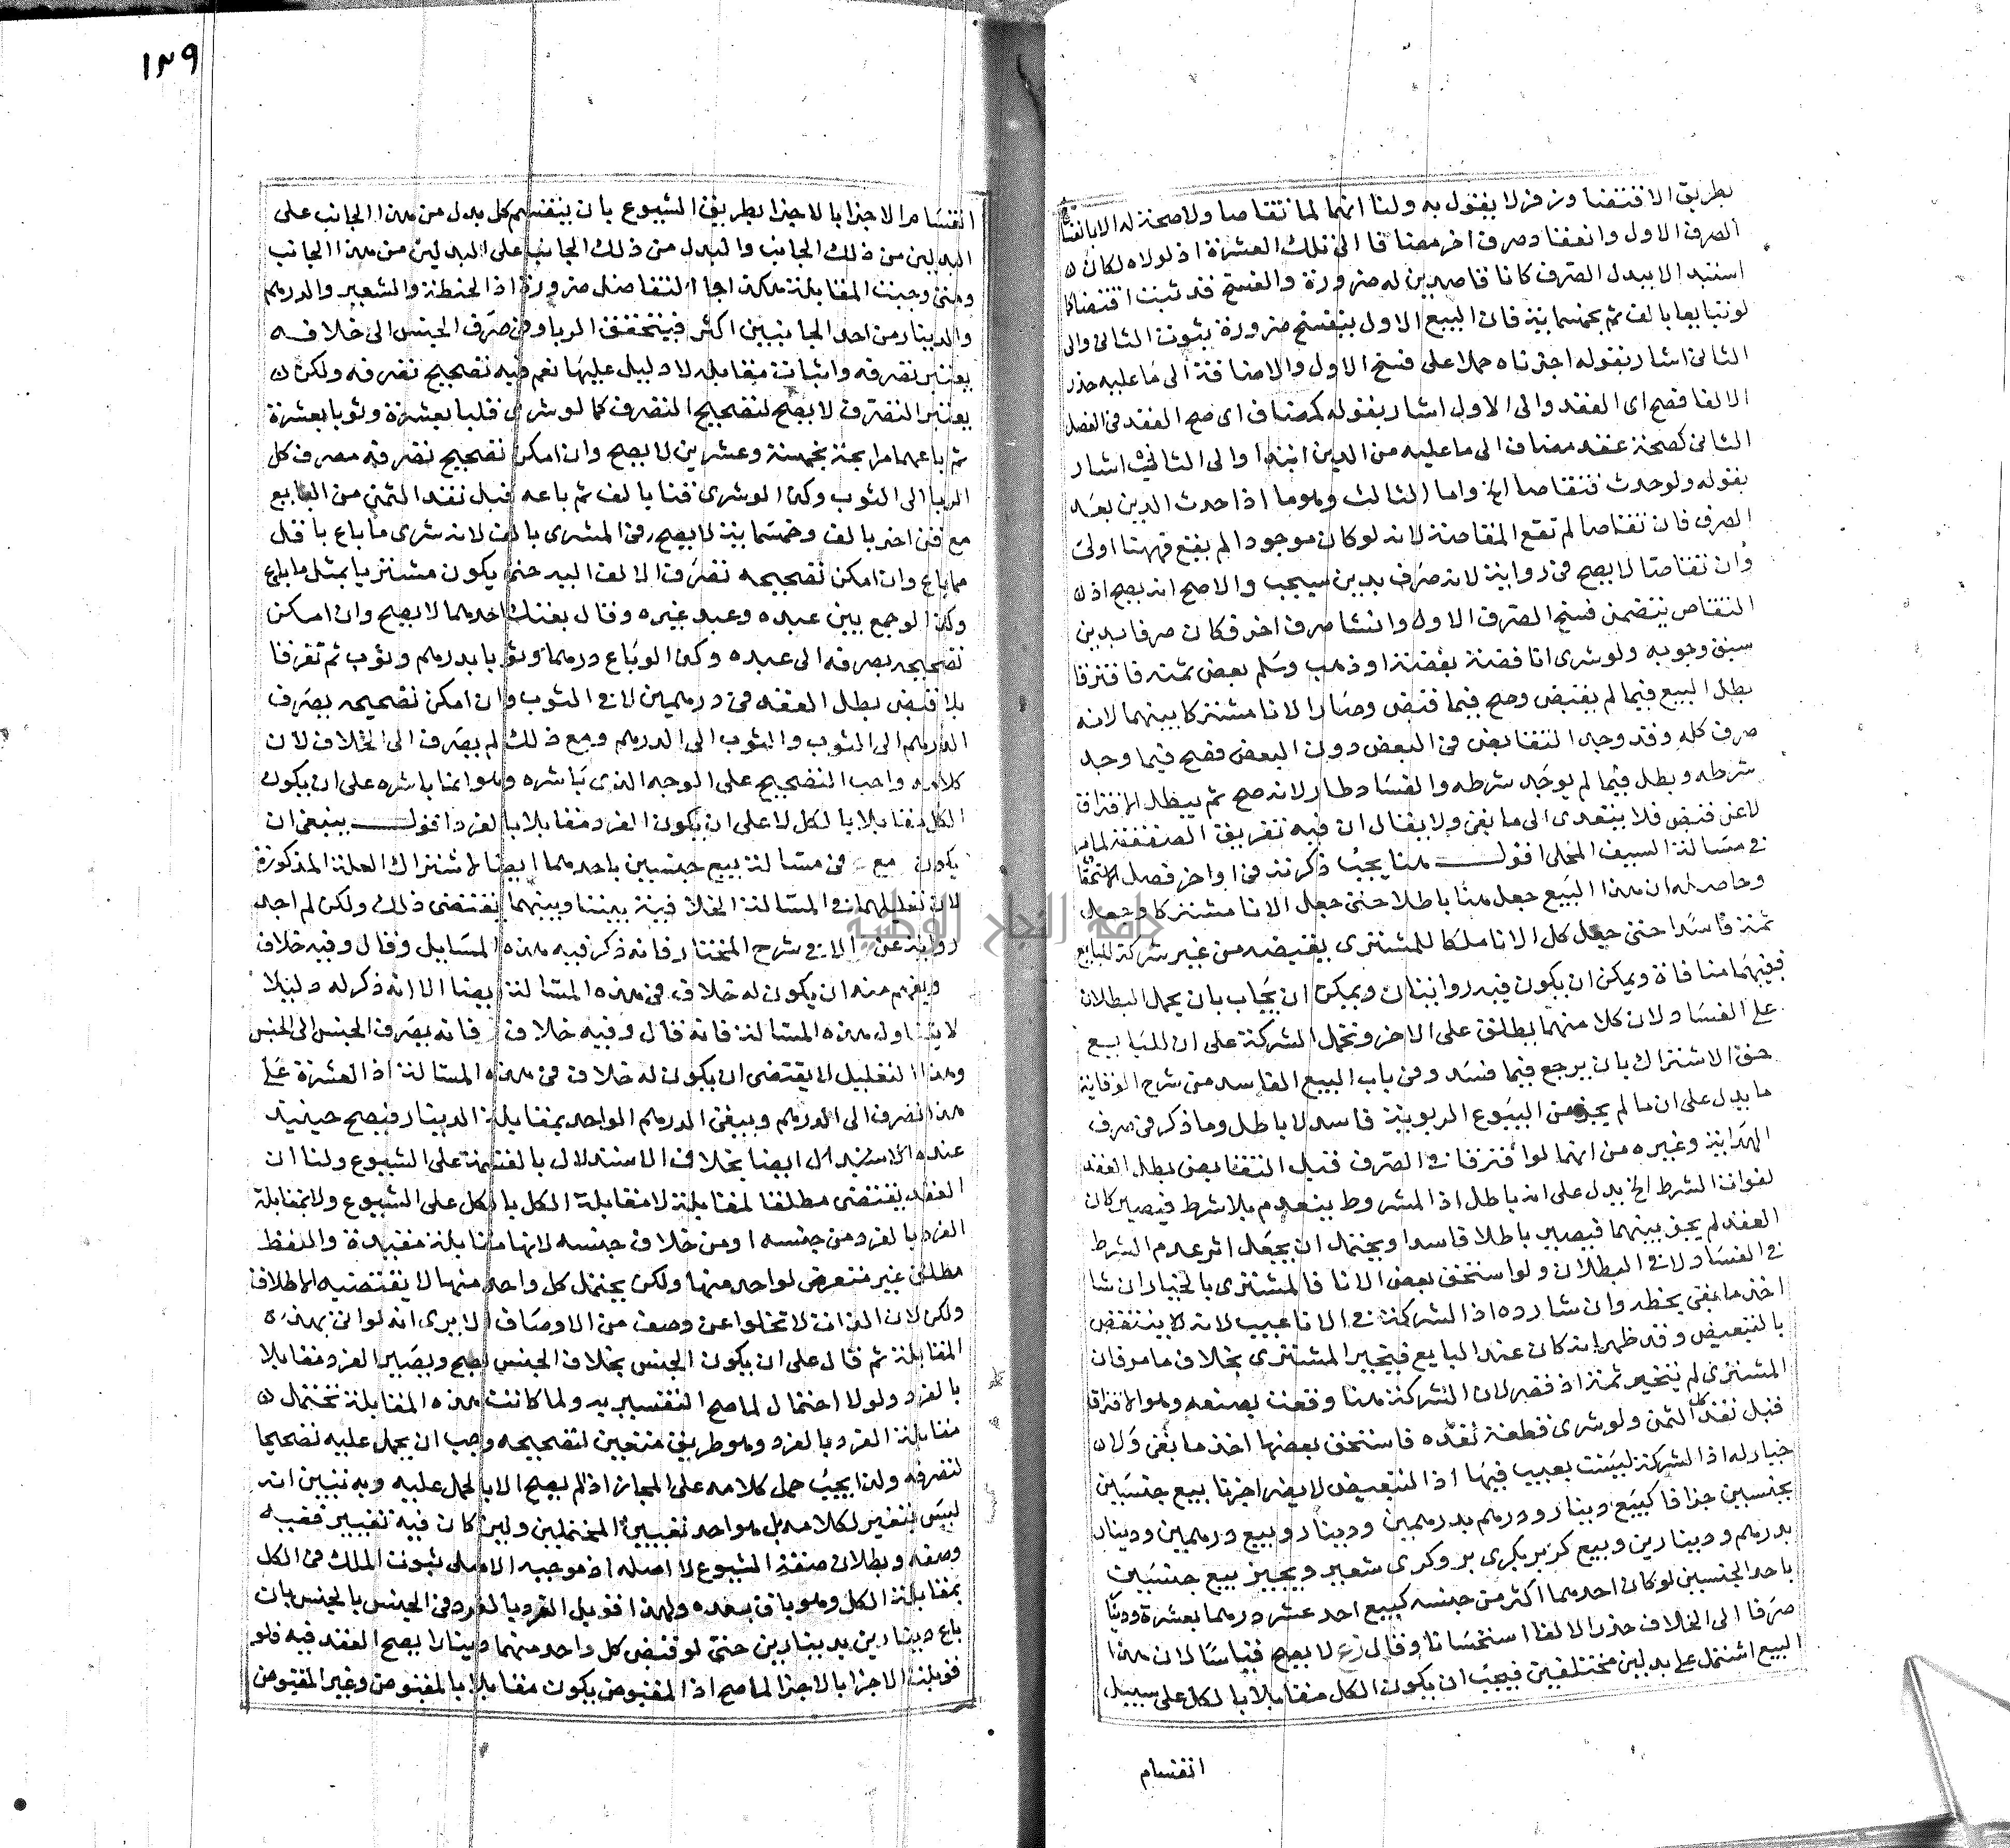 بطريق الاقتضا وزفر لا يقول به ولنا انهما لما تقاصا ولا صحة له الا بانفساخ
الصرف الاول وانعقاد صرف اخر مضافا الى تلك العشرة اذ لولاه لكان
استبد الا ببدل الصرف كانا قاصدين له ضرورة والفسخ قد ثبت اقتضا كما
لو تبايعا بالف ثم بخمسماية فان البيع الاول ينفسخ ضرورة ثبوت الثاني والى
الثاني اشار بقوله اجزناه حملا على فسخ الاول والاضافة الى ما عليه حذر
الالغا فصح اى العقد والى الاول اشار بقوله كمضاف اى صح العقد فى الفصل
الثاني كصحة عقد مضاف الى ما عليه من الدين ابتدا والى الثالث اشار
بقوله ولو حدث فتقاصا الخ واما الثالث وهو ما اذا حدث الدين بعد
الصرف فان تقاصا لم تقع المقاصة لانه لو كان موجودا لم يقع فههنا اولى
وان تقاصا لا يصح فى رواية لانه صرف بدين سيجب والاصح انه يصح اذ
التقاص يتضمن فسخ الصرف الاول وانشا صرف اخر فكان صرفا بدين
سبق وجوبه ولو شرى انا فضة بفضة او ذهب وسلم بعض ثمنه فافترقا
بطل البيع فيما لم يقبض وصح فيما قبض وصار الانا مشتركا بينهما لانه
صرف كله وقد وجد التقابض فى البعض دون البعض فصح فيما وجد
شرطه وبطل فيما لم يوجد شرطه والفساد طار لانه صح ثم يبطل بالافتراق
لا عن قبض فلا يتعدى الى ما بقى ولا يقال ان فيه تفريق الصفقة لما مر
فى مسالة السيف المحلى اقول هنا يجب ذكرته فى اواخر فصل الاستحقا
وحاصله ان هذا البيع جعل هنا باطلا حتى جعل الانا مشتركا وجعل
ثمة فاسدا حتى جعل كل الانا ملكا للمشترى بقبضه من غير شركة للبايع
فبينهما منافاة ويمكن ان يكون فيه روايتان ويمكن ان يجاب بان يحمل البطلان
على الفساد لان كلا منهما يطلق على الاخر وتحمل الشركة على ان للبايع
حق الاشتراك بان يرجع فيما فسد وفى باب البيع الفاسد من شرح الوقاية
ما يدل على ان ما لم يجز من البيوع الربوية فاسد لا باطل وما ذكر فى صرف
الهداية وغيره من انهما لو افترقا فى الصرف قبل التقابض بطل العقد
لفوات الشرط الخ يدل على انه باطل اذ المشروط ينعدم بلا شرط فيصير كان
العقد لم يجز بينهما فيصير باطلا فاسدا ويحتمل ان يجعل اثر عدم الشرط
فى الفساد لا فى البطلان ولو استحق بعض الانا فالمشترى بالخيار ان شا
اخذ ما بقى بحظه وان شا رده اذ الشركة فى الانا عيب لانه لا ينتقض
بالتبعيض وقد ظهر انه كان عند البايع فيتخير المشترى بخلاف ما مر فان
المشترى لم يتخير ثمة اذ قصر لان الشركة هنا وقعت بصنعه وهو الافتراق
قبل نقد كل الثمن ولو شرى قطعة نقده فاستحق بعضها اخذ ما بقى ولا
خيار له اذ الشركة ليست بعيب فيها اذ التبعيض لا يضر اجزنا بيع جنسين
بجنسين جزافا كبيع دينار ودرهم بدرهمين ودينار وبيع درهمين ودينار
بدرهم ودينارين وبيع كر بر بكرى بر وكرى شعير ويجيز بيع جنسين
باحد الجنسين لو كان احدهما اكثر من جنسه كبيع احد عشر درهما بعشرة ودينار
صرفا الى الخلاف حذر الالغا استحسانا وقال زفر لا يصح قياسا لان هذا
البيع اشتمل على بدلين مختلفين فيجب ان يكون الكل مقابلا بالكل على سبيل
انقسام
١٣٩
انقسام الاجزا بالاجزا بطريق الشيوع بان ينقسم كل بدل من هذا الجانب على
البدلين من ذلك الجانب والبدل من ذلك الجانب على البدلين من هذا الجانب
ومتى وجبت المقابلة هكذا جا التفاضل ضرورة اذ الحنطة والشعير والدرهم
والدينار من احد الجانبين اكثر فيتحقق الربا وفى صرف الجنس الى خلافه
تغيير تصرفه واثبات مقابلة لا دليل عليها نعم فيه تصحيح تصرفه ولكن
تغيير التصرف لا يصح لتصحيح التصرف كما لو شرى قلبا بعشرة وثوبا بعشرة
ثم باعهما مرابحة بخمسة وعشرين لا يصح وان امكن تصحيح تصرفه بصرف كل
الربا الى الثوب وكذا لو شرى قنا بالف ثم باعه قبل نقد الثمن من البايع
مع قن اخر بالف وخمسماية لا يصح فى المشرى بالف لانه شرى ما باع باقل
مما باع وان امكن تصحيحه بصرف الالف اليه حتى يكون مشتريا بمثل ما باع
وكذا لو جمع بين عبده وعبد غيره وقال بعتك احدهما لا يصح وان امكن
تصحيحه بصرفه الى عبده وكذا لو باع درهما وثوبا بدرهم وثوب ثم تفرقا
بلا قبض بطل العقد فى درهمين لا فى الثوب وان امكن تصحيحه بصرف
الدرهم الى الثوب والثوب الى الدرهم ومع ذلك لم يصرف الى الخلاف لان
كلامه واجب التصحيح على الوجه الذى باشره وهو انما باشره على ان يكون
الكل مقابلا بالكل لا على ان يكون الفرد مقابلا بالفرد اقول ينبغى ان
يكون مع فى مسالة بيع جنسين باحدهما ايضا لاشتراك العلة المذكورة
لان تعليلهما فى المسالة الخلافية بيننا وبينهما يقتضى ذلك ولكن لم اجد
رواية عن الا فى شرح المختار فانه ذكر فيه هذه المسايل وقال وفيه خلاف
ويفهم منه ان يكون له خلاف فى هذه المسالة ايضا الا انه ذكر له دليلا
لا يتناول هذه المسالة فانه قال وفيه خلاف فانه بصرف الجنس الى الجنس
وهذا التعليل لا يقتضى ان يكون له خلاف فى هذه المسالة اذ العشرة على
هذا تصرف الى الدرهم ويبقى الدرهم الواحد بمقابلة الدينار فيصح حينيذ
عنده الاستدلال ايضا بخلاف الاستدلال بالقسمة على الشيوع ولنا ان
العقد يقتضى مطلق المقابلة لا مقابلة الكل بالكل على الشيوع ولا بمقابلة
الفرد بالفرد من جنسه او من خلاف جنسه لانها مقابلة مقيدة واللفظ
مطلق غير متعرض لواحد منها ولكن يحتمل كل واحد منها لا يقتضيه الاطلاق
ولكن لان الذات لا تخلوا عن وصف من الاوصاف الا يرى انه لو اتى بهذه
المقابلة ثم قال على ان يكون الجنس بخلاف الجنس يصح ويصير الفرد مقابلا
بالفرد ولولا احتمال لما صح التفسير به ولما كانت هذه المقابلة تحتمل
مقابلة الفرد بالفرد وهو طريق متعين لتصحيحه وجب ان يحمل عليه تصحيحا
لتصرفه ولذا يجب حمل كلامه على المجاز اذ لم يصح الا بالحمل عليه وبه تبين انه
ليس بتغير لكلامه بل هو احد تعيين المحتملين ولين كان فيه تغيير ففيه
وصفه وبطلان صفة الشيوع لا اصله اذ موجبه الاصلى ثبوت الملك فى الكل
بمقابلة الكل وهو باق بعده ولهذا قوبل الفرد بالفرد فى الجنس بالجنس بان
باع دينارين بدينارين حتى لو قبض كل واحد منهما دينارا يصح العقد فيه فلو
قوبلت الاجزا بالاجزا لما صح اذ المقبوض يكون مقابلا بالمقبوض وغير المقبوض
جامعة النجاح الوطنية